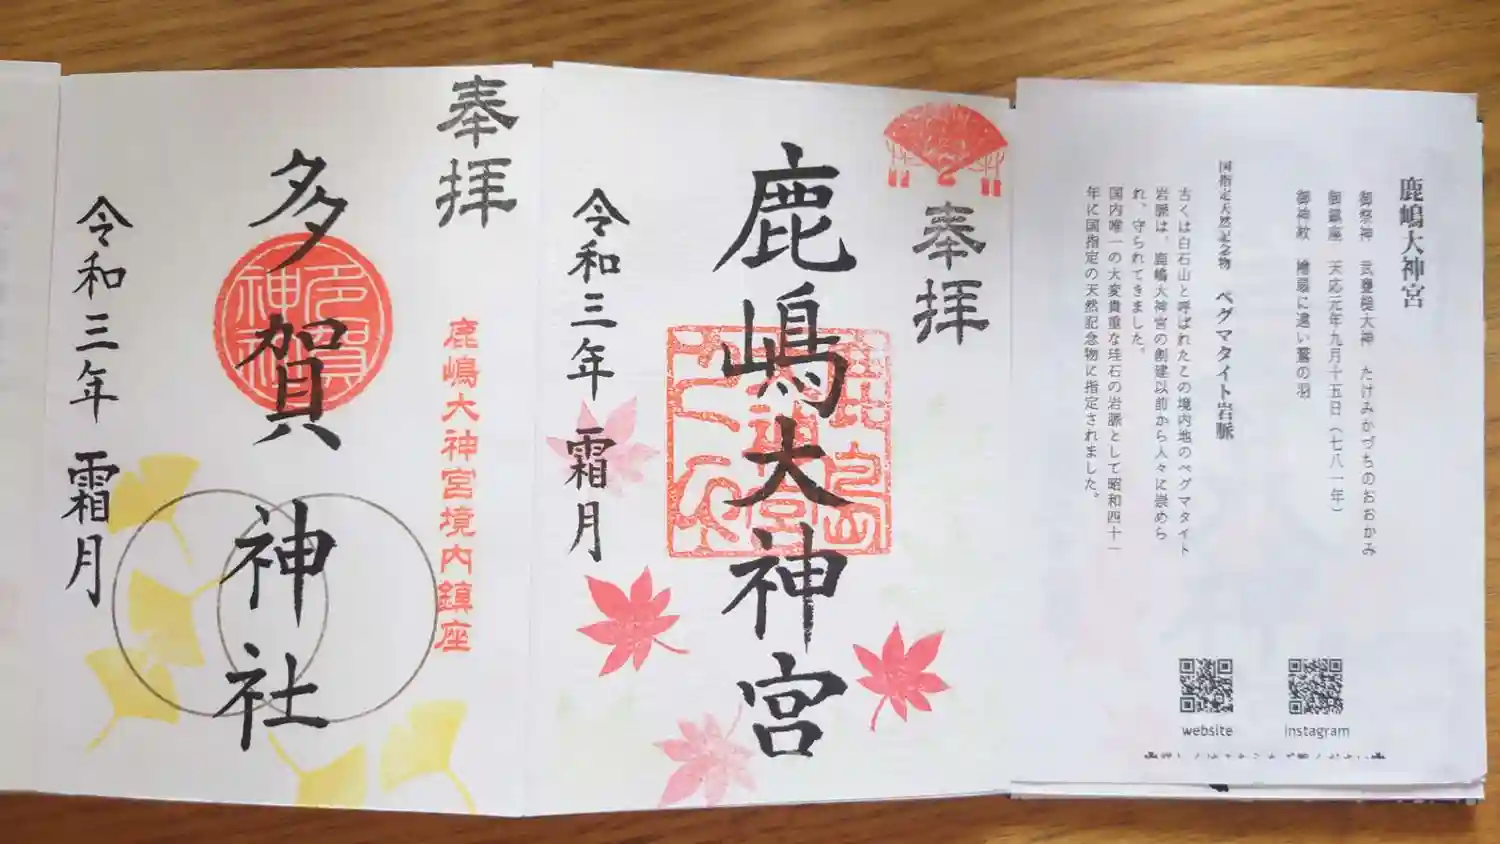 鹿嶋大神宮
御祭神 武甕槌大神 たけみかづちのおおかみ
御鎮座 天応元年九月十五日（七八一年）
御神紋 檜扇に違い鷲の羽
国指定天然記念物 ペグマタイト岩脈
古くは白石山と呼ばれたこの境内地のペグマタイト
岩脈は、鹿嶋大神宮の創建以前から人々に崇めら
れ、守られてきました。
国内唯一の大変貴重な珪石の岩脈として昭和四十一
年に国指定の天然記念物に指定されました。
website
instagram
奉拝
鹿嶋大神宮
令和三年 霜月
奉拝
鹿嶋大神宮境内鎮座
多賀神社
令和三年 霜月